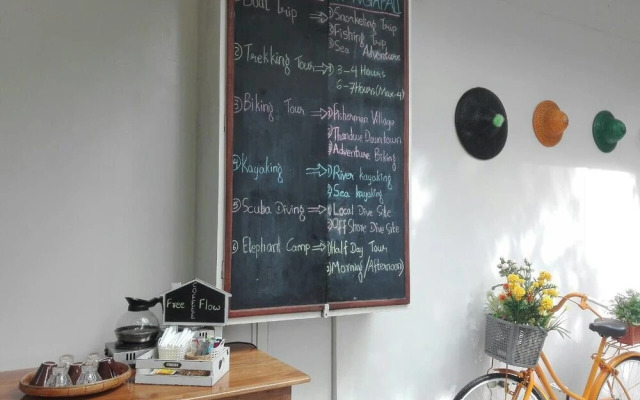 NGAPALI
Boat Trip ⇒ 1) Snorkeling Trip
2) Fishing Trip
3) Sea Adventure
② Trekking Tour ⇒ 1) 3-4 Hours
6-7 Hours (Max-4)
③ Biking Tour ⇒ 1) Fisherman Village
2) Thandwe Downtown
3) Adventure Biking
④ Kayaking ⇒ 1) River kayaking
2) Sea kayaking
⑤ Scuba Diving ⇒ 1) Local Dive Site
2) Off Shore Dive Site
⑥ Elephant Camp ⇒ 1) Half Day Tour
2) (Morning/Afternoon)
Free COFFEE Flow